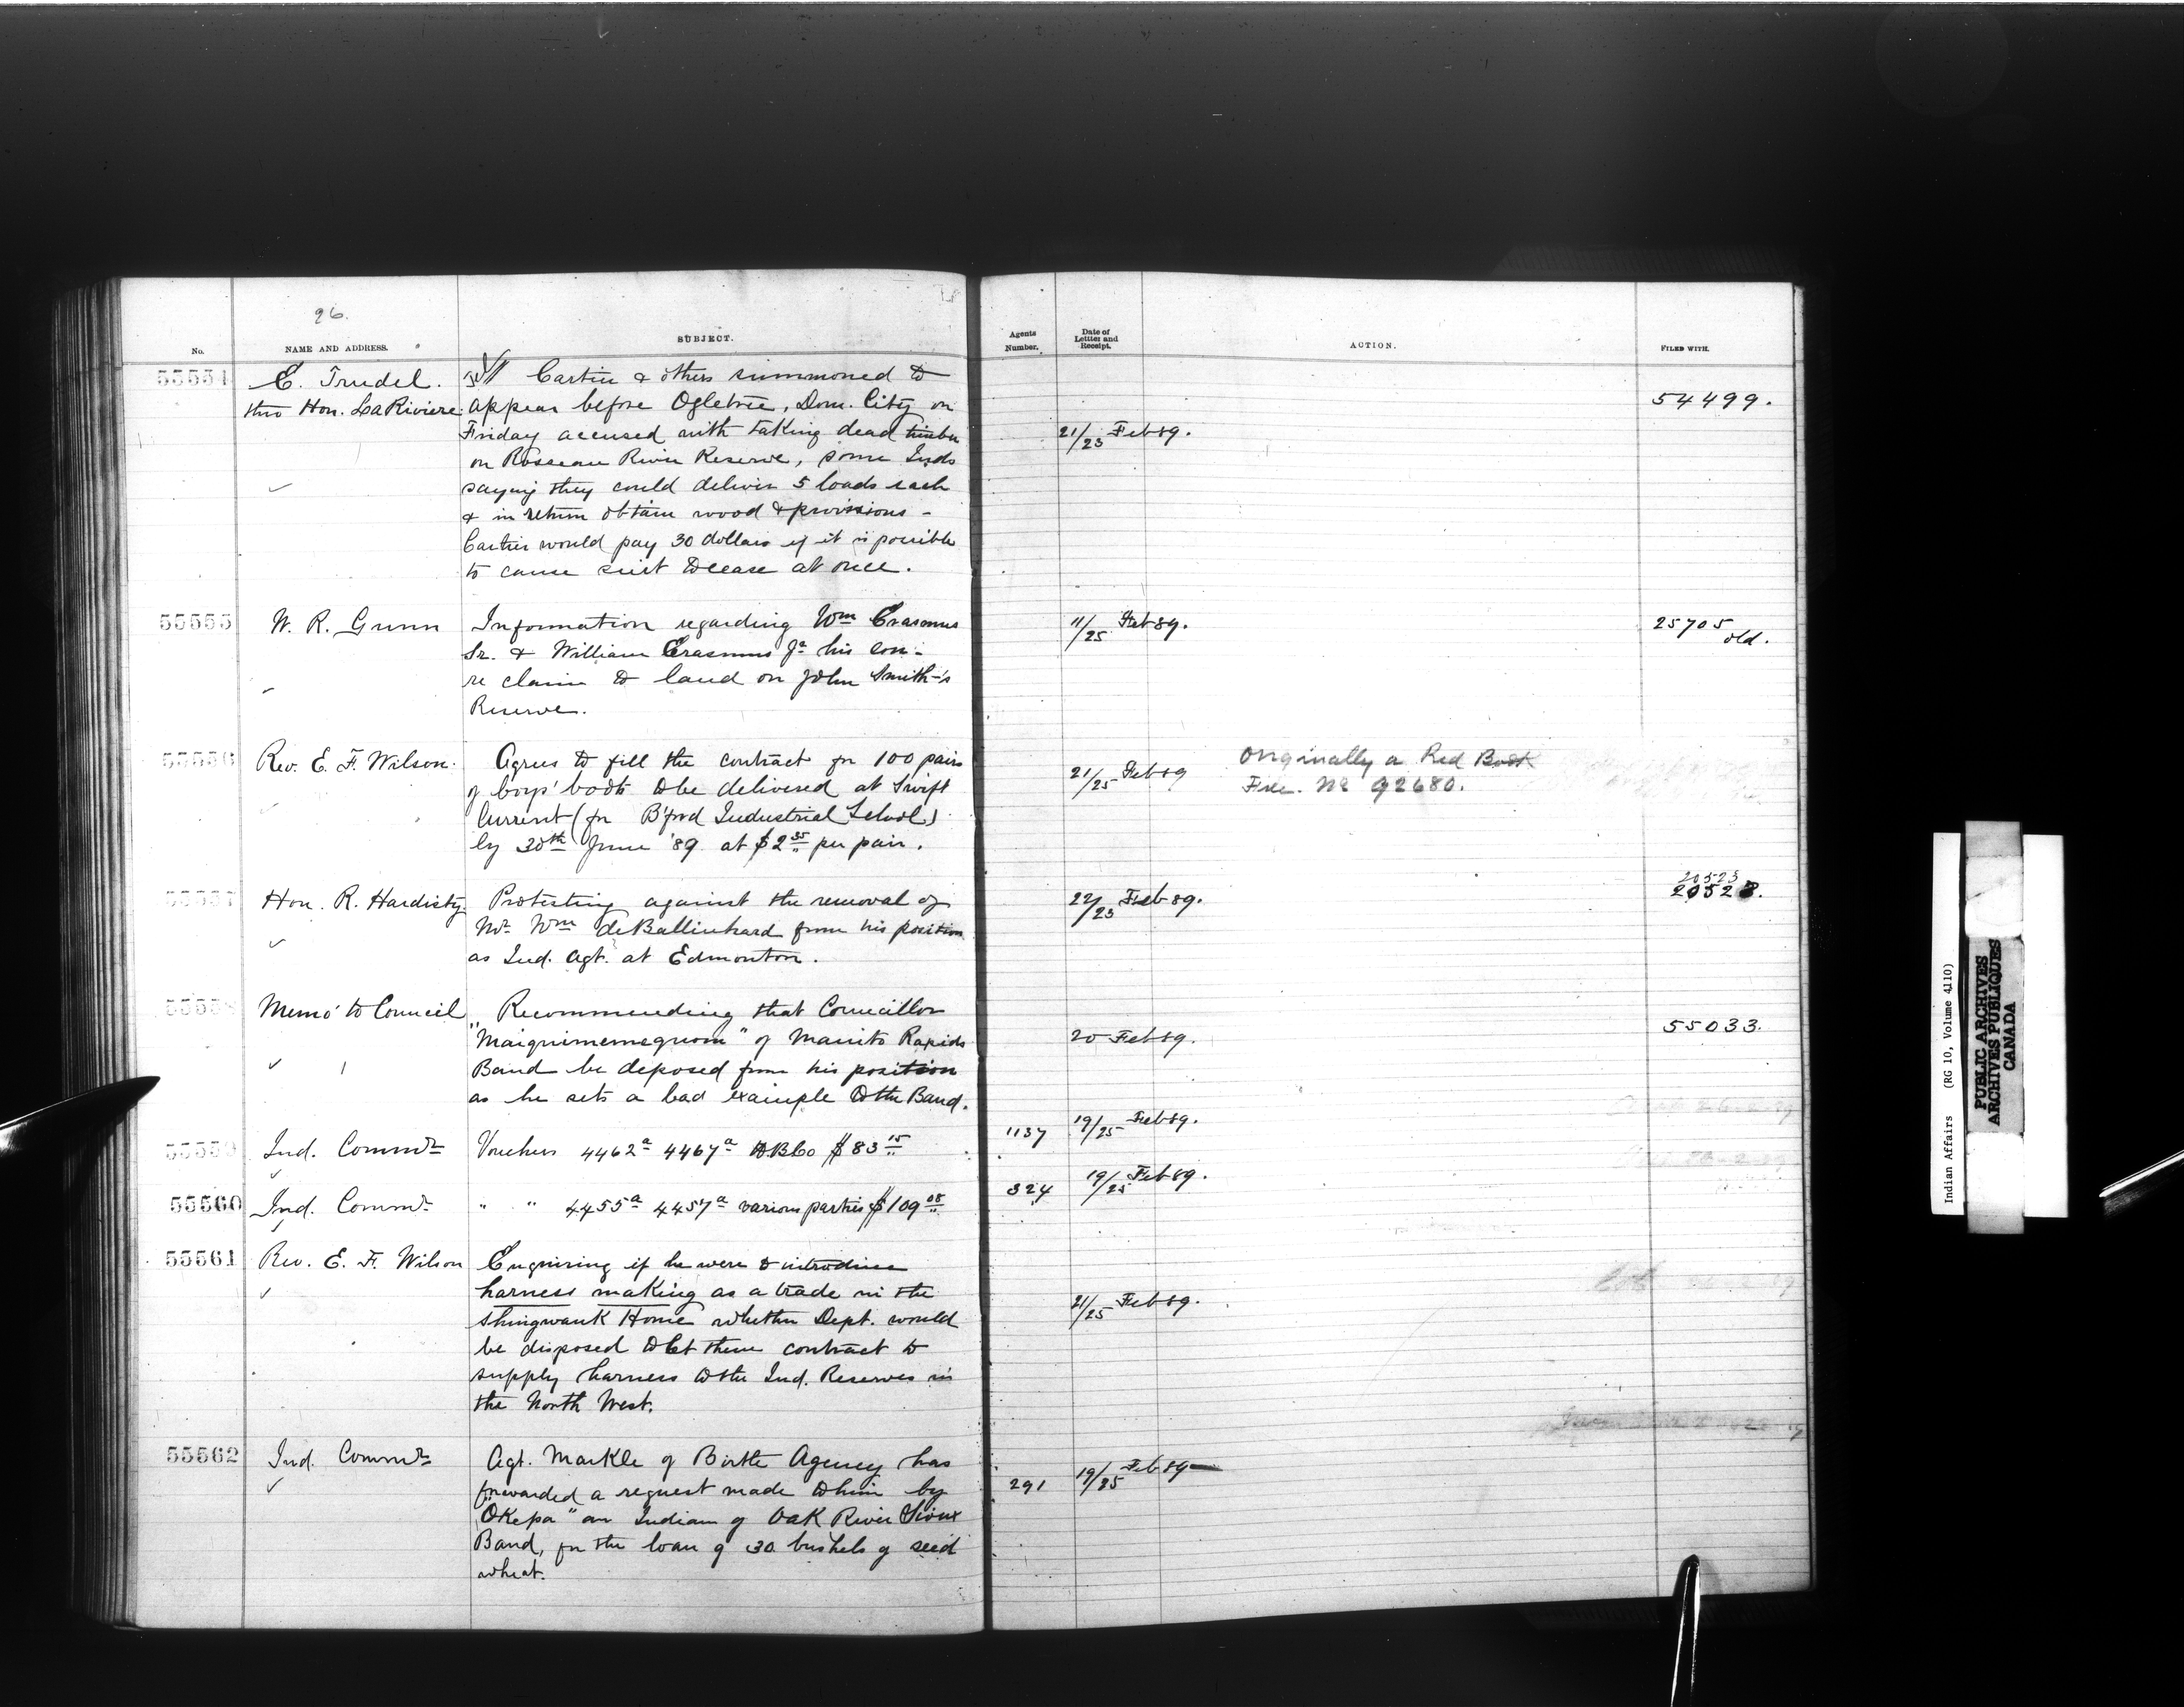 26.
No. NAME AND ADDRESS. SUBJECT. Agents Number. Date of Letter and Receipt. ACTION. FILED WITH.
55554 E. Trudel. Cartier & others summoned to
thro Hon. LaRiviere. appear before Ogletree, Dom. City on 54499.
Friday accused with taking dead timber 21/23 Feb 89.
on Rosseau River Reserve, some Inds
saying they could deliver 5 loads each
& in return obtain wood & provisions -
Cartier would pay 30 dollars if it is possible
to cause suit to cease at once.
55555 W. R. Gunn Information regarding Wm Erasmus 11/25 Feb 89. 25705
Sr. & William Erasmus Jr. his son - old.
re claim to land on John Smith's
Reserve.
55556 Rev. E. F. Wilson. Agrees to fill the contract for 100 pairs 21/25 Feb 89 Originally a Red Book
of boys' boots to be delivered at Swift File. No 92680.
Current (for B'ford Industrial School)
by 30th June '89 at $2.35 per pair.
55557 Hon. R. Hardisty Protesting against the removal of 22/23 Feb 89. 20523
Mr. Wm deBallinhard from his position
as Ind. Agt. at Edmonton.
55558 Memo to Council Recommending that Councillor
"Maiquimemequom" of Manito Rapids 20 Feb 89. 55033.
Band be deposed from his position
as he sets a bad example to the Band.
55559 Ind. Commr Vouchers 4462a 4467a H.B.Co $83.15 1137 19/25 Feb 89.
55560 Ind. Commr " " 4455a 4457a various parties $109.08 324 19/25 Feb 89.
55561 Rev. E. F. Wilson Enquiring if he were to introduce
harness making as a trade in the
Shingwauk Home whether Dept. would 21/25 Feb 89.
be disposed to let them contract to
supply harness to the Ind. Reserves in
the North West.
55562 Ind. Commr Agt. Markle of Birtle Agency has
forwarded a request made to him by 291 19/25 Feb 89
"Okepa" an Indian of Oak River Sioux
Band, for the loan of 30 bushels of seed
wheat.
Indian Affairs (RG 10, Volume 4110)
PUBLIC ARCHIVES
ARCHIVES PUBLIQUES
CANADA